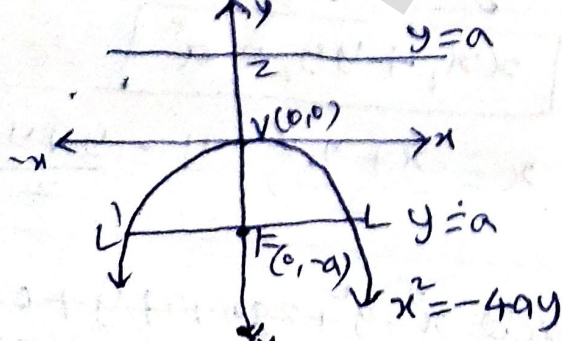 y
y=a
Z
V(0,0)
-x
x
L'
L
y=-a
F(0,-a)
x²=-4ay